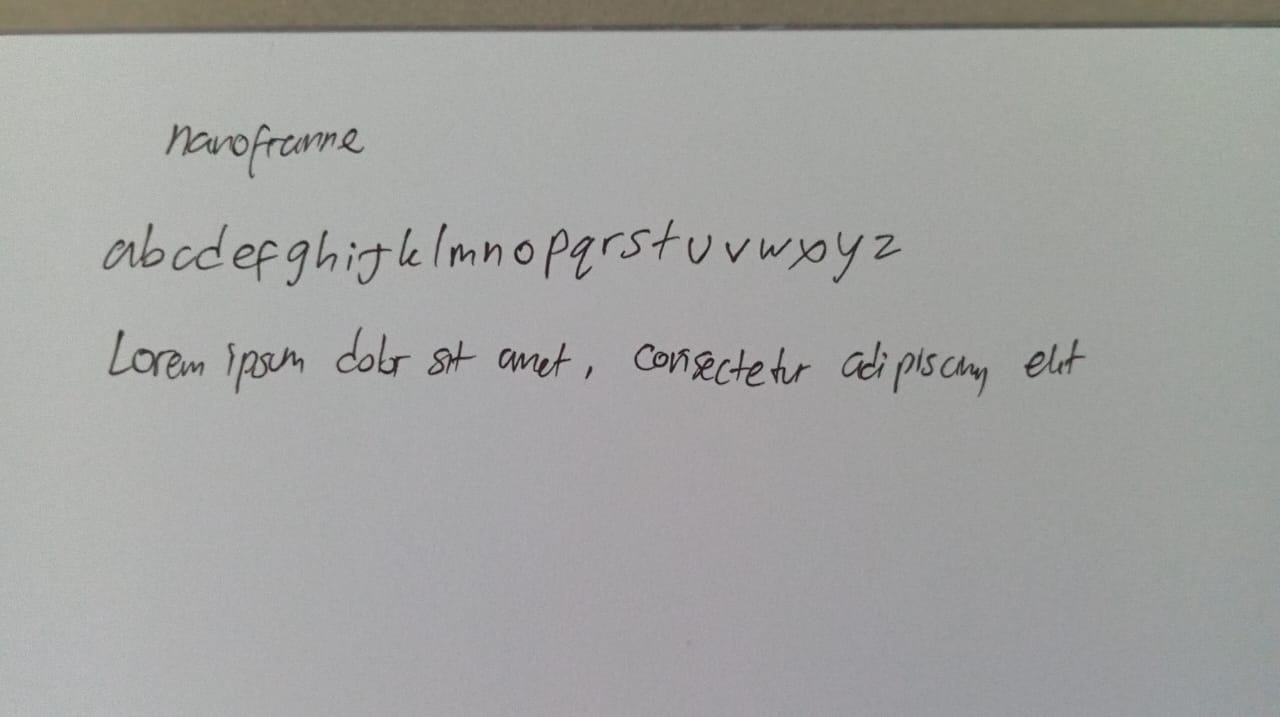 nanoframe
abcdefghijklmnopqrstuvwxyz
Lorem ipsum dolor sit amet, consectetur adipiscing elit